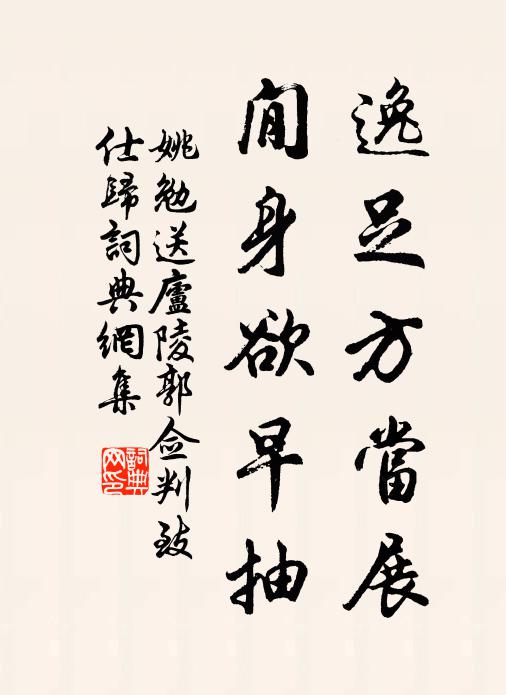 逸足方當展
閒身欲早抽
姚勉送廬陵郭僉判致
仕歸詞典網集
詞典
网印